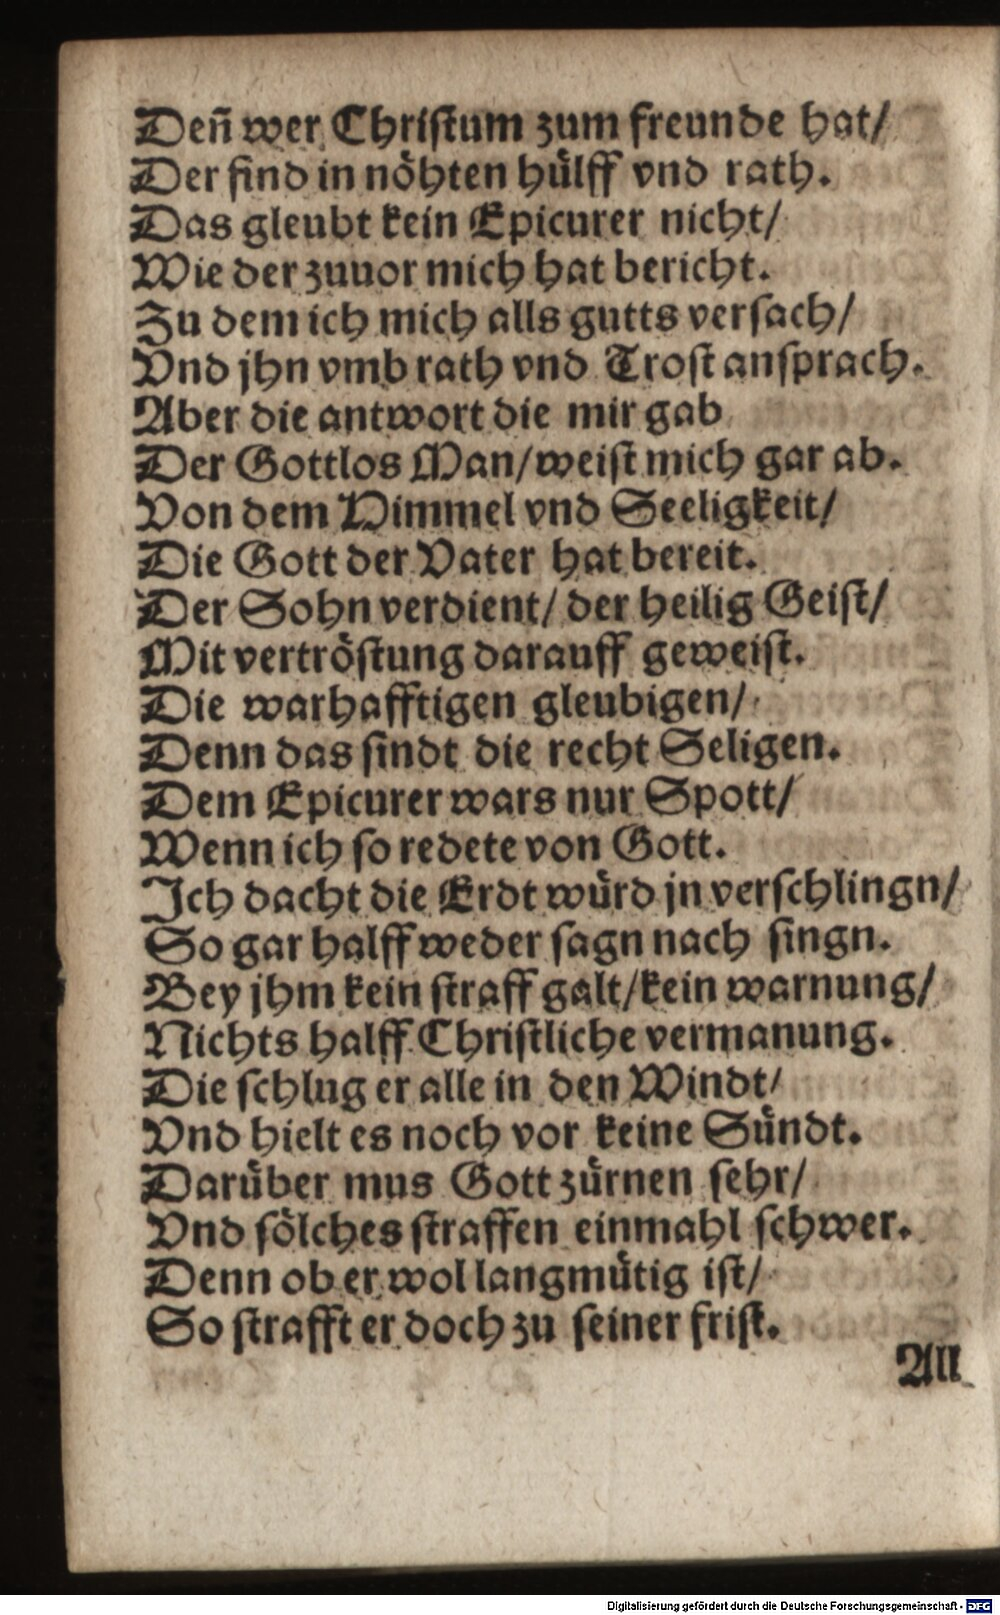 Deñ wer Christum zum freunde hat/
Der find in nöhten hülff vnd rath.
Das gleubt kein Epicurer nicht/
Wie der zuuor mich hat bericht.
Zu dem ich mich alls gutts versach/
Vnd jhn vmb rath vnd Trost ansprach.
Aber die antwort die mir gab
Der Gottlos Man/weist mich gar ab.
Von dem Himmel vnd Seeligkeit/
Die Gott der Vater hat bereit.
Der Sohn verdient/ der heilig Geist/
Mit vertröstung darauff geweist.
Die warhafftigen gleubigen/
Denn das sindt die recht Seligen.
Dem Epicurer wars nur Spott/
Wenn ich so redete von Gott.
Ich dacht die Erdt würd jn verschlingn/
So gar halff weder sagn nach singn.
Bey jhm kein straff galt/kein warnung/
Nichts halff Christliche vermanung.
Die schlug er alle in den Windt/
Vnd hielt es noch vor keine Sündt.
Darüber mus Gott zürnen sehr/
Vnd sölches straffen einmahl schwer.
Denn ob er wol langmütig ist/
So strafft er doch zu seiner frist.
All
Digitalisierung gefördert durch die Deutsche Forschungsgemeinschaft - DFG